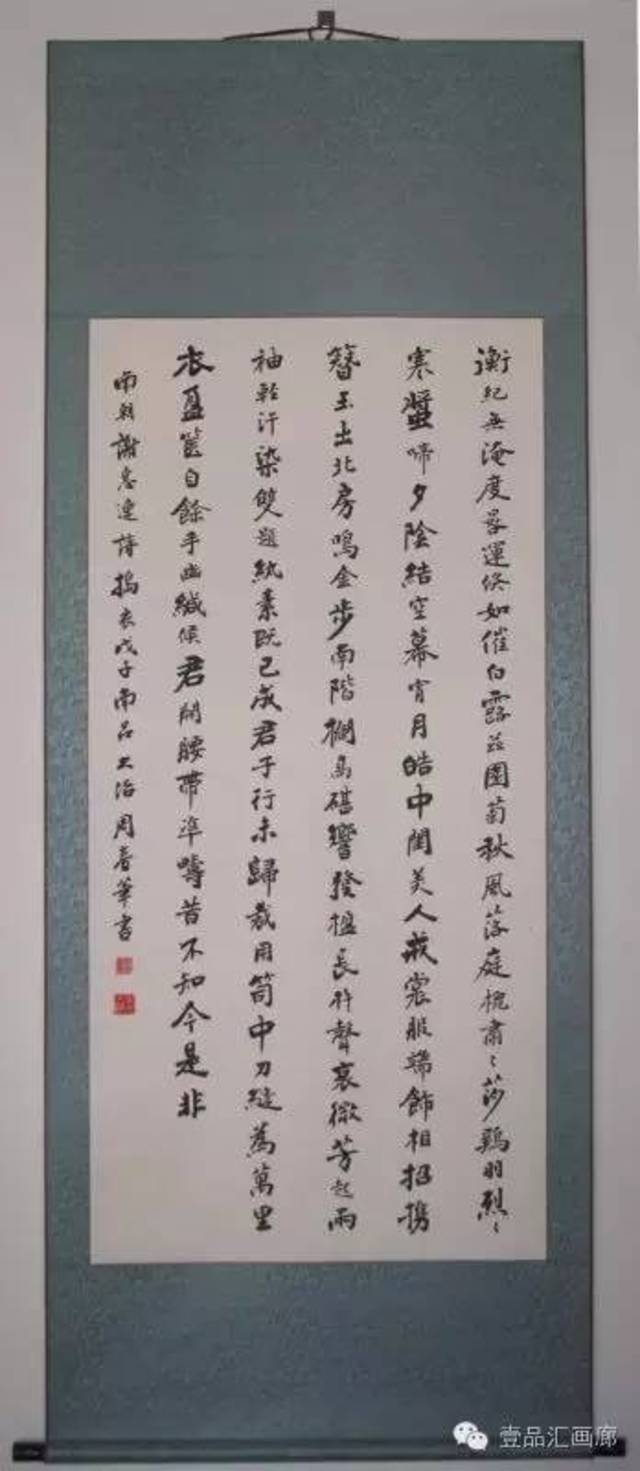 衡紀無淹度晷運倐如催白露茲園菊秋風落庭槐肅〻莎鷄羽烈〻
寒螿啼夕陰結空幕宵月皓中閨美人戒裳服端飾相招攜
簪玉出北房鳴金步南階櫩高砧響發楹長杵聲哀微芳起兩
袖輕汗染雙題紈素既已成君子行未歸裁用笥中刀縫為萬里
衣盈篋自餘手幽緘候君開腰帶準疇昔不知今是非
南朝謝惠連詩搗衣戊子南呂大治周春華書
壹品汇画廊